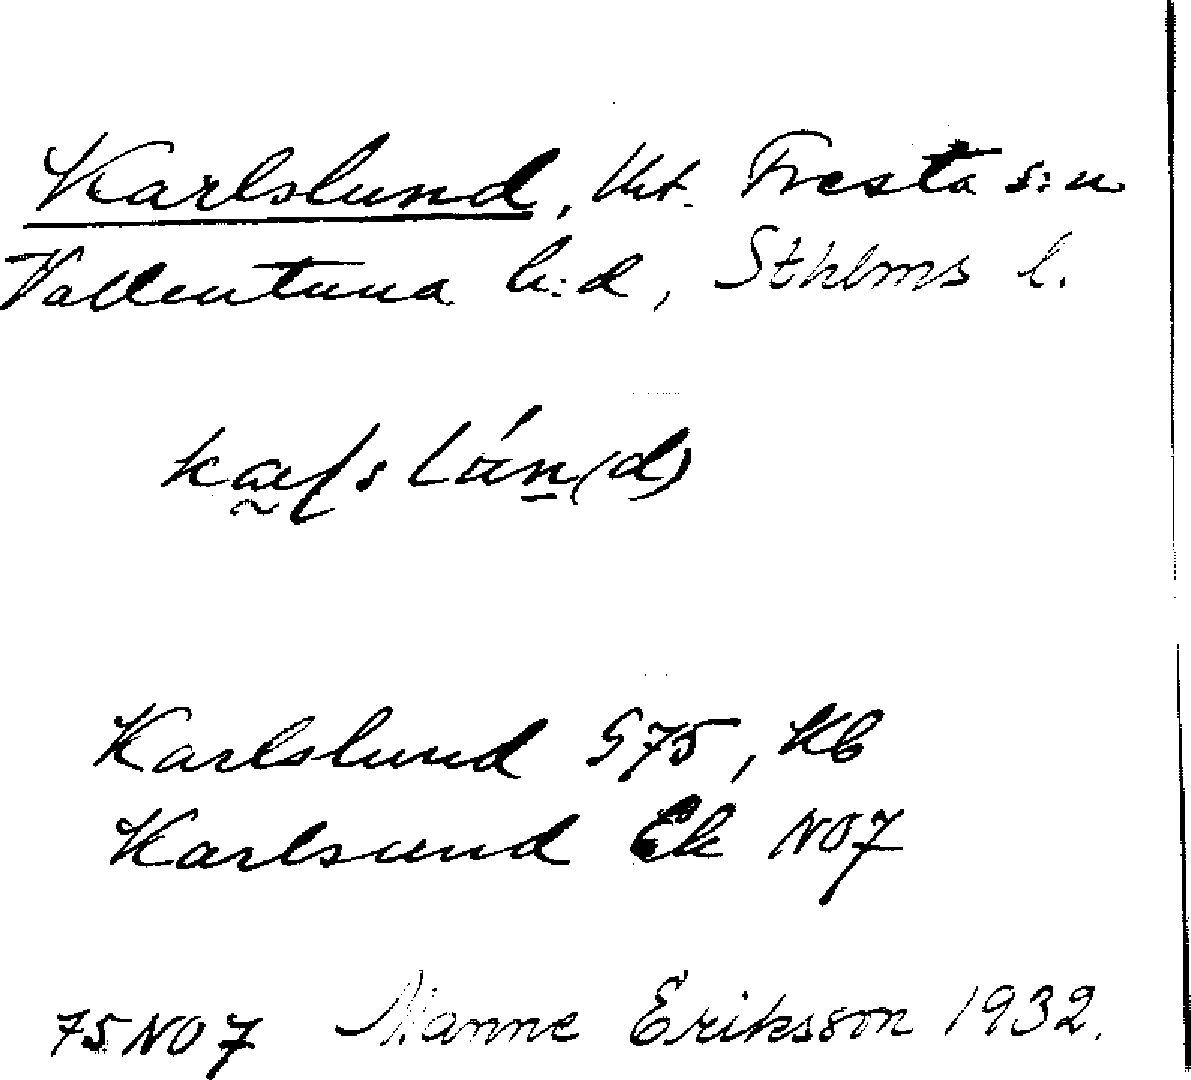 Karlslund, Fresta s:n
Vallentuna h:d, Sthlms l.
Karlslund G75, Kb
Karlsund Ek NO7
75NO7 Manne Eriksson 1932.